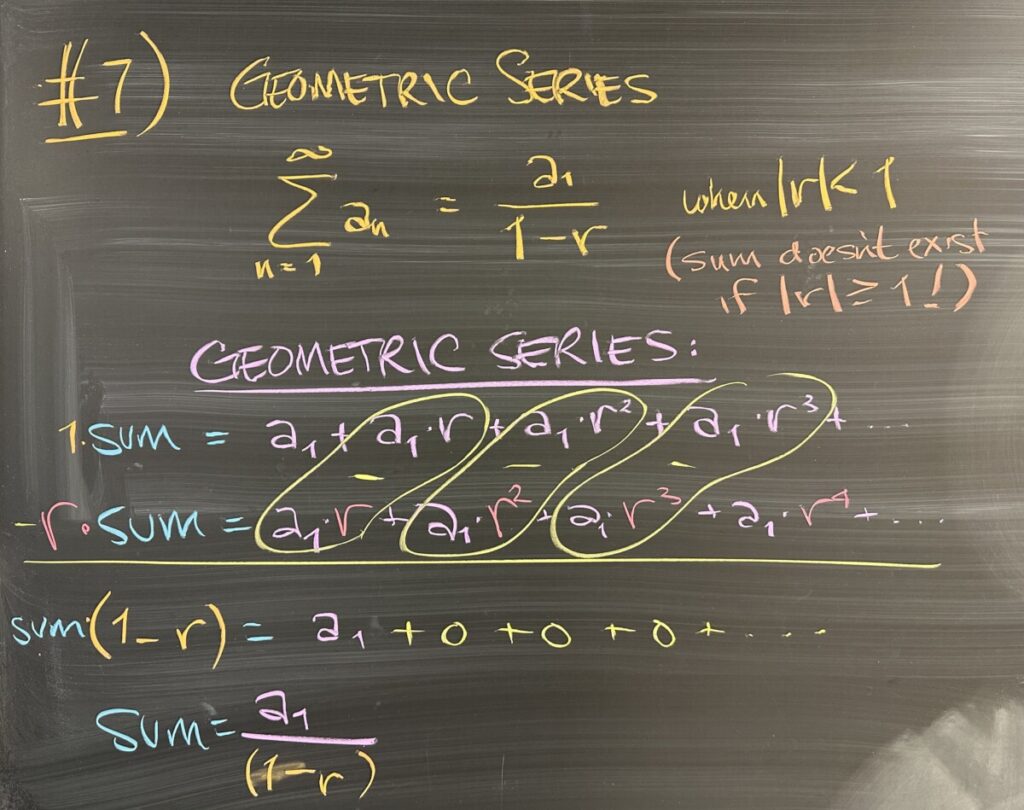 #7) GEOMETRIC SERIES
∞
∑ aₙ = a₁ / (1-r) when |r| < 1
n=1
(sum doesn't exist
if |r| ≥ 1!)
GEOMETRIC SERIES:
1·sum = a₁ + a₁·r + a₁·r² + a₁·r³ + ....
- - -
-r·sum = a₁·r + a₁·r² + a₁·r³ + a₁·r⁴ + ....
sum(1-r) = a₁ + 0 + 0 + 0 + ....
sum = a₁ / (1-r)